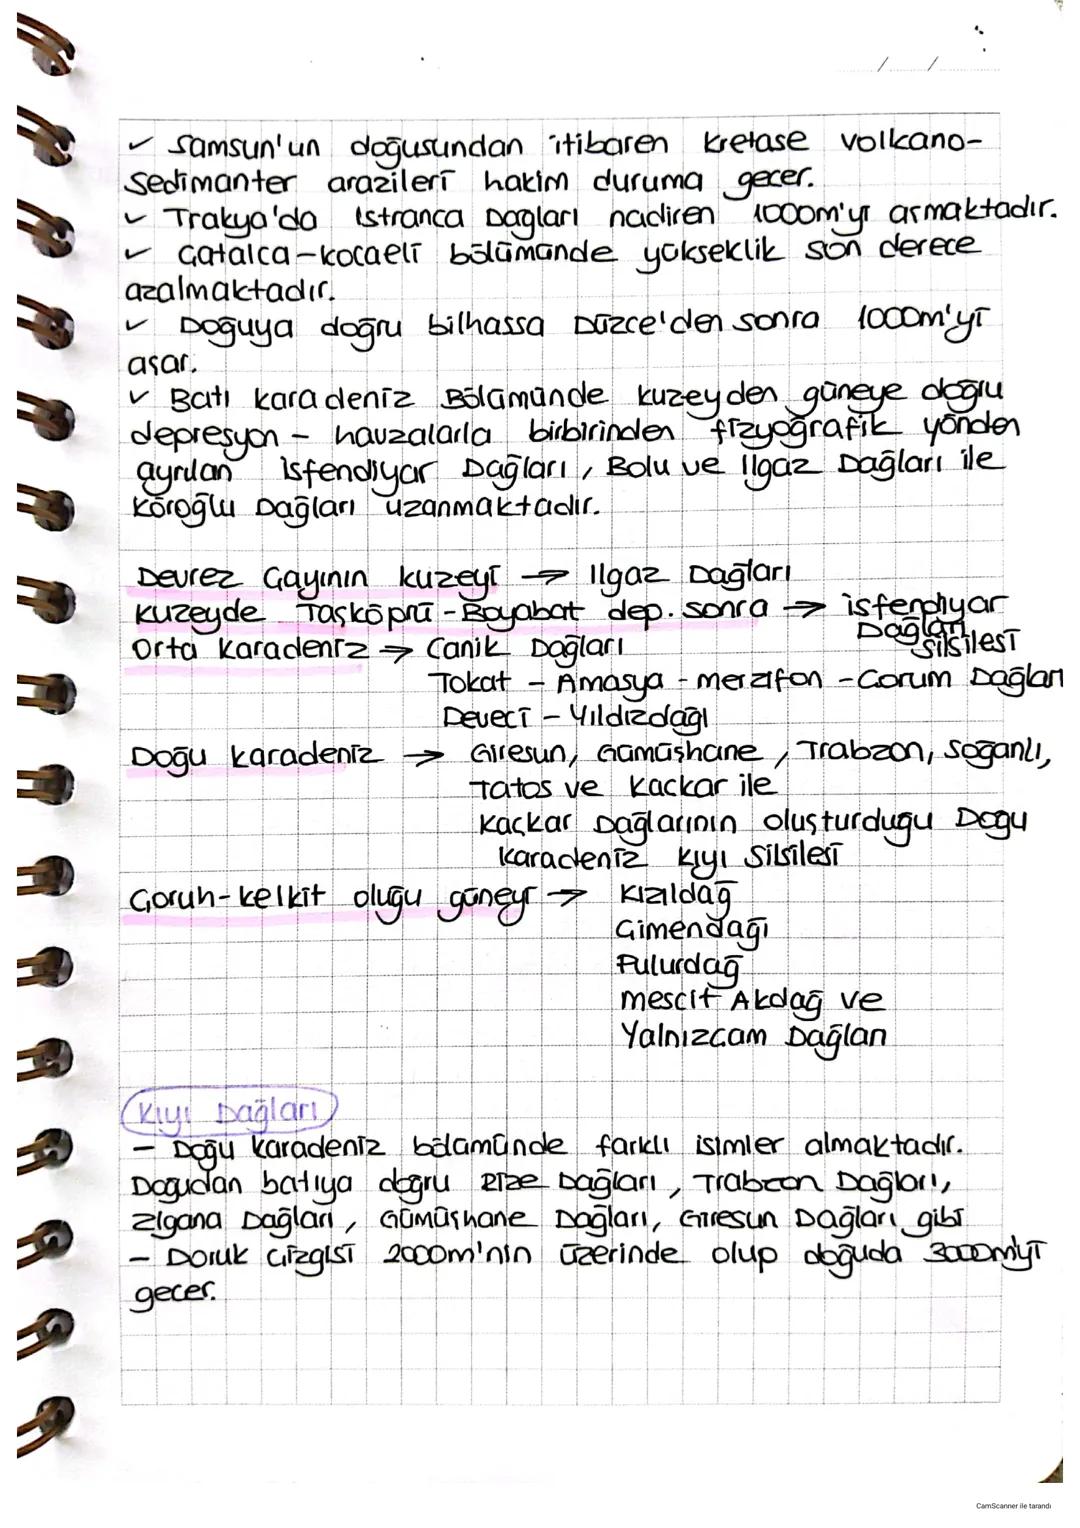 / /
✓ Samsun'un doğusundan itibaren kretase volkano-
sedimanter arazileri hakim duruma geçer.
✓ Trakya'da Istranca Dağları nadiren 1000m'yi aşmaktadır.
✓ Çatalca-Kocaeli bölümünde yükseklik son derece
azalmaktadır.
✓ Doğuya doğru bilhassa Düzce'den sonra 1000m'yi
aşar.
✓ Batı Karadeniz Bölümünde kuzeyden güneye doğru
depresyon - havzalarla birbirinden fizyoğrafik yönden
ayrılan İsfendiyar Dağları, Bolu ve Ilgaz Dağları ile
Köroğlu Dağları uzanmaktadır.
Devrez Çayının kuzeyi → Ilgaz Dağları
Kuzeyde Taşköprü-Boyabat dep. sonra → İsfendiyar
Dağları
silsilesi
Orta Karadeniz → Canik Dağları
Tokat - Amasya - Merzifon - Çorum Dağları
Deveci - Yıldızdağı
Doğu Karadeniz → Giresun, Gümüşhane, Trabzon, Soğanlı,
Tatos ve Kaçkar ile
Kaçkar Dağlarının oluşturduğu Doğu
Karadeniz Kıyı Silsilesi
Çoruh-Kelkit oluğu güneyi → Kızıldağ
Çimendağı
Pulurdağ
Mescit Akdağ ve
Yalnızçam Dağları
Kıyı Dağları
- Doğu Karadeniz bölümünde farklı isimler almaktadır.
Doğudan batıya doğru Rize Dağları, Trabzon Dağları,
Zigana Dağları, Gümüşhane Dağları, Giresun Dağları gibi
- Doruk çizgisi 2000m'nin üzerinde olup doğuda 3000m'yi
geçer.
CamScanner ile tarandı